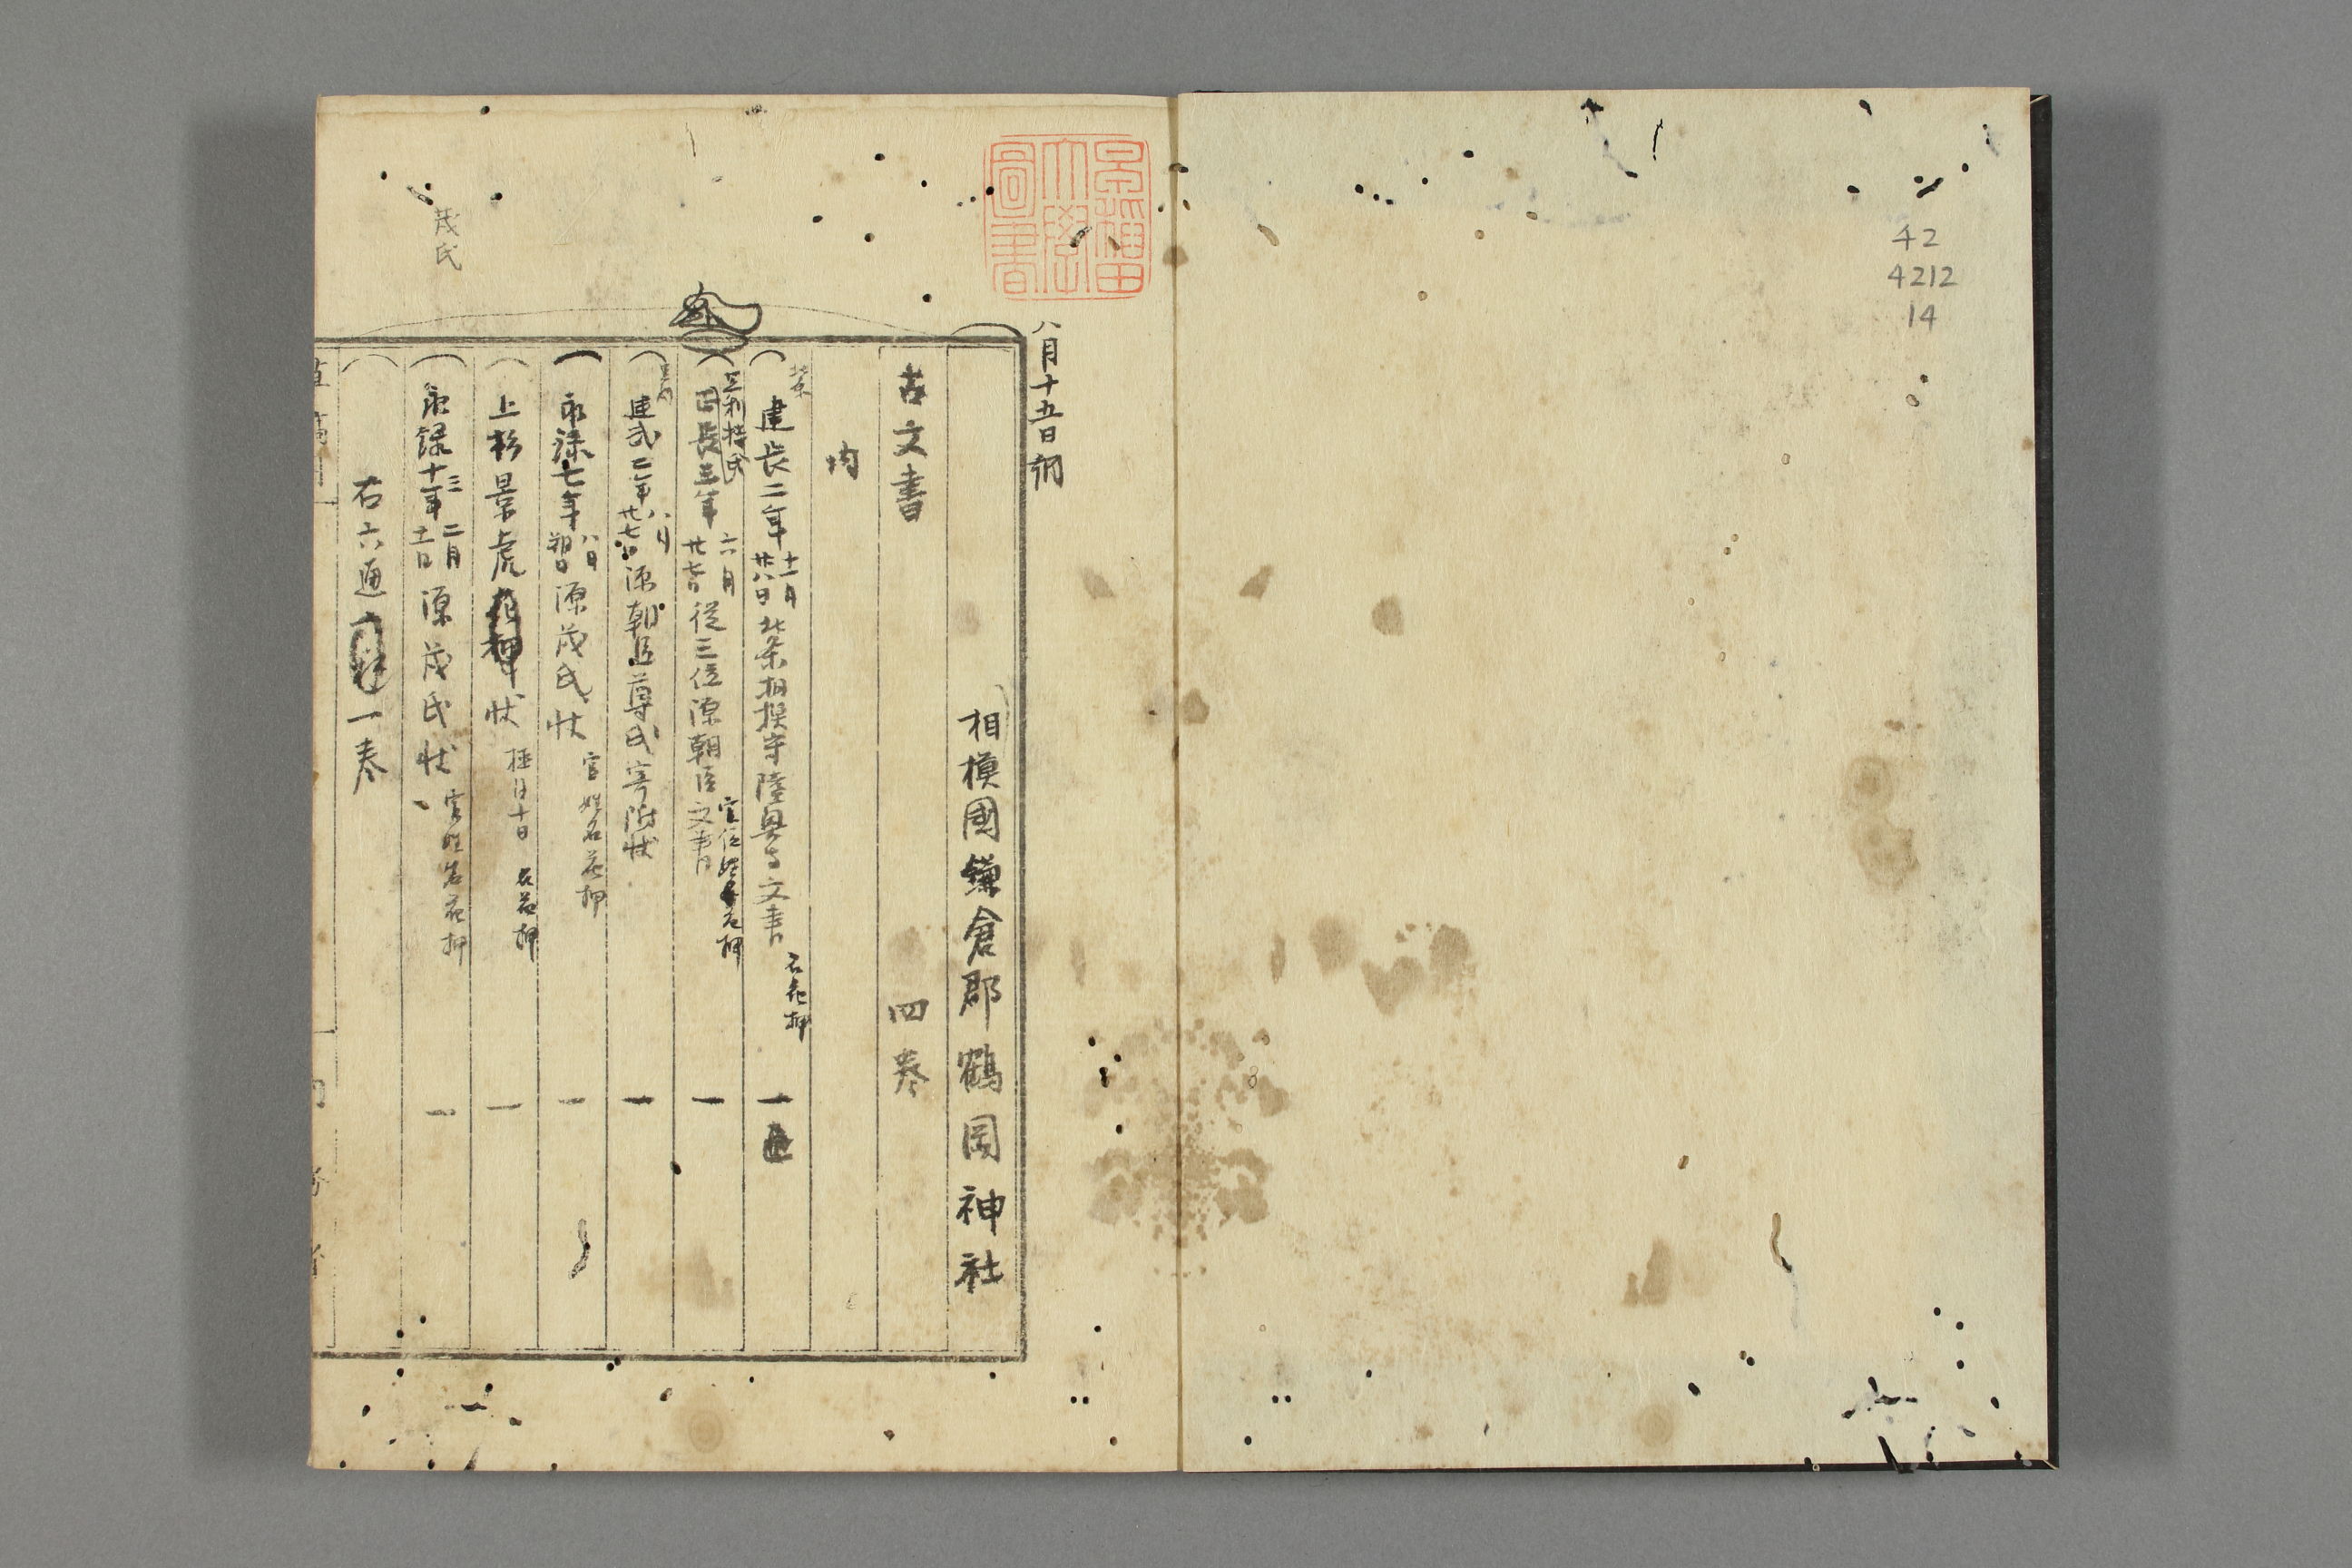 42
4212
14
早稲田
大學
圖書
八月十五日
相模國鎌倉郡鶴岡神社
古文書 四巻
内
建長二年十一月廿八日北条相模守陸奥守文書 名花押 一通
足利持氏
應長三年六月廿七日従三位源朝臣文書 官位姓名花押 一
建武二年八月廿七日源朝臣尊氏寄附状 一
永禄七年八月朔日源茂氏状 官姓名花押 一
上杉景虎状 極月十日 名花押 一
永禄十三年二月十一日源茂氏状 官姓名花押 一
右六通 一巻
茂氏